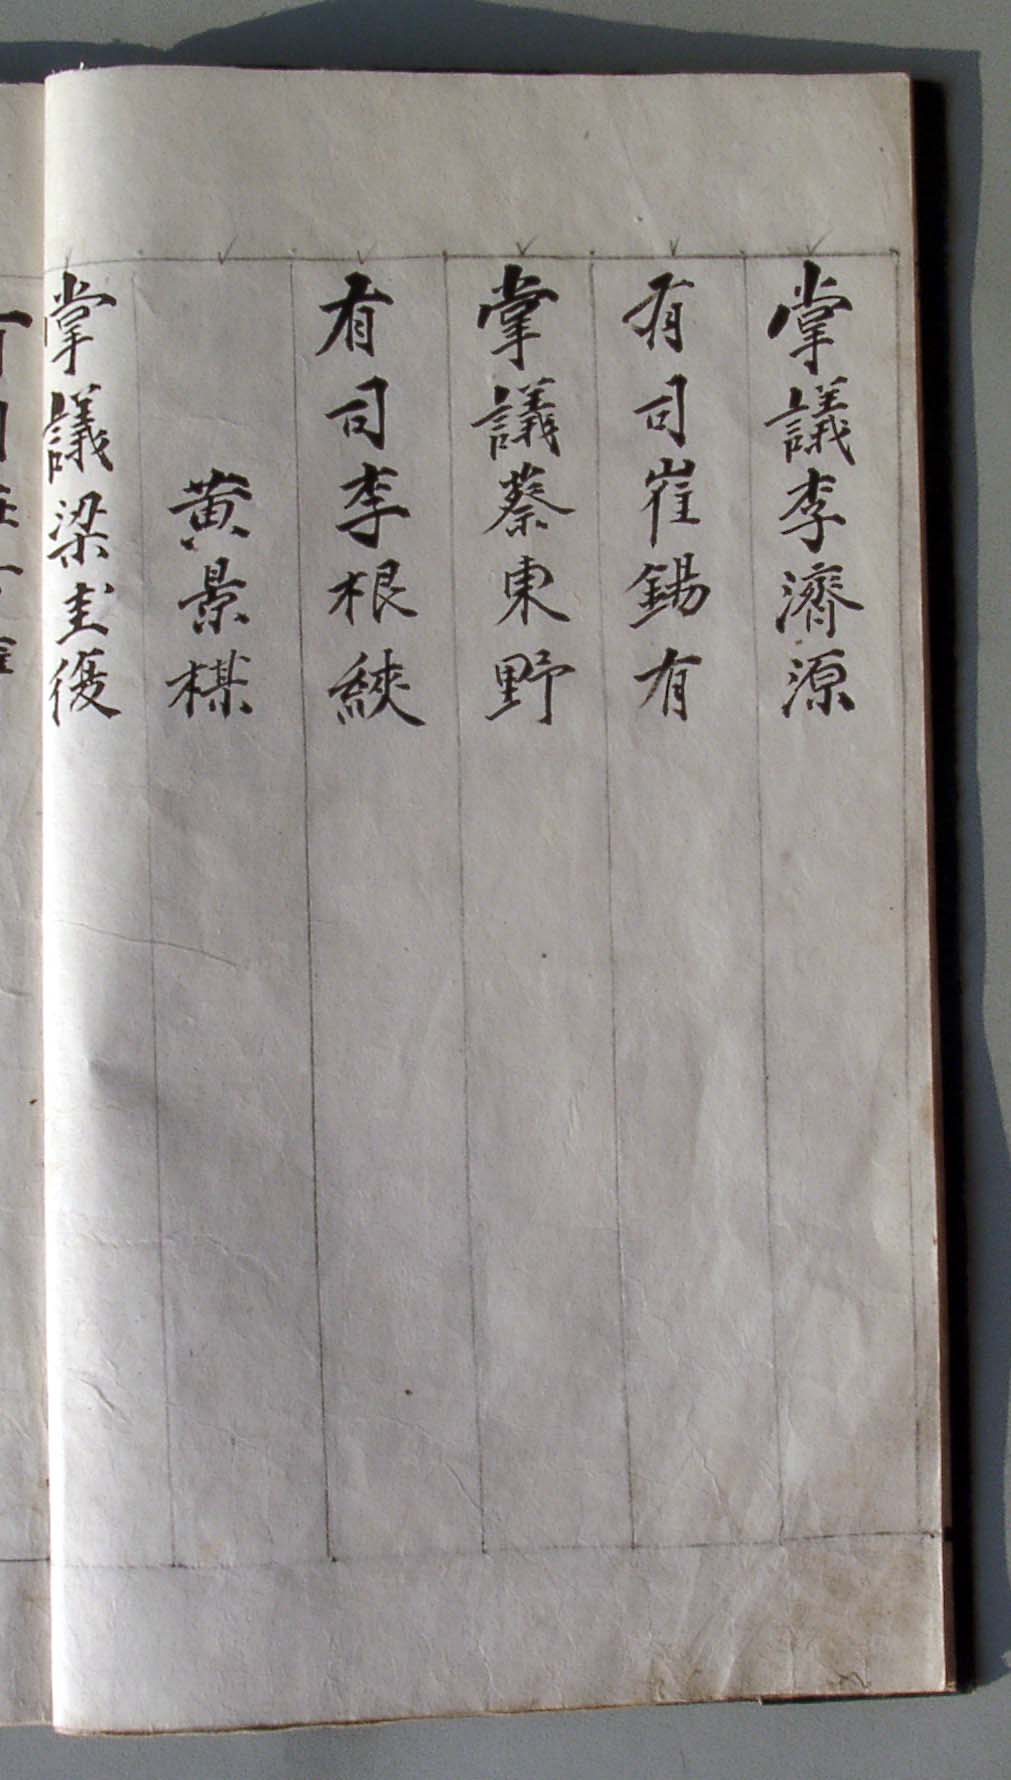 掌議李濟源
有司崔錫有
掌議蔡東野
有司李根綊
黃景楳
掌議梁圭復
有司